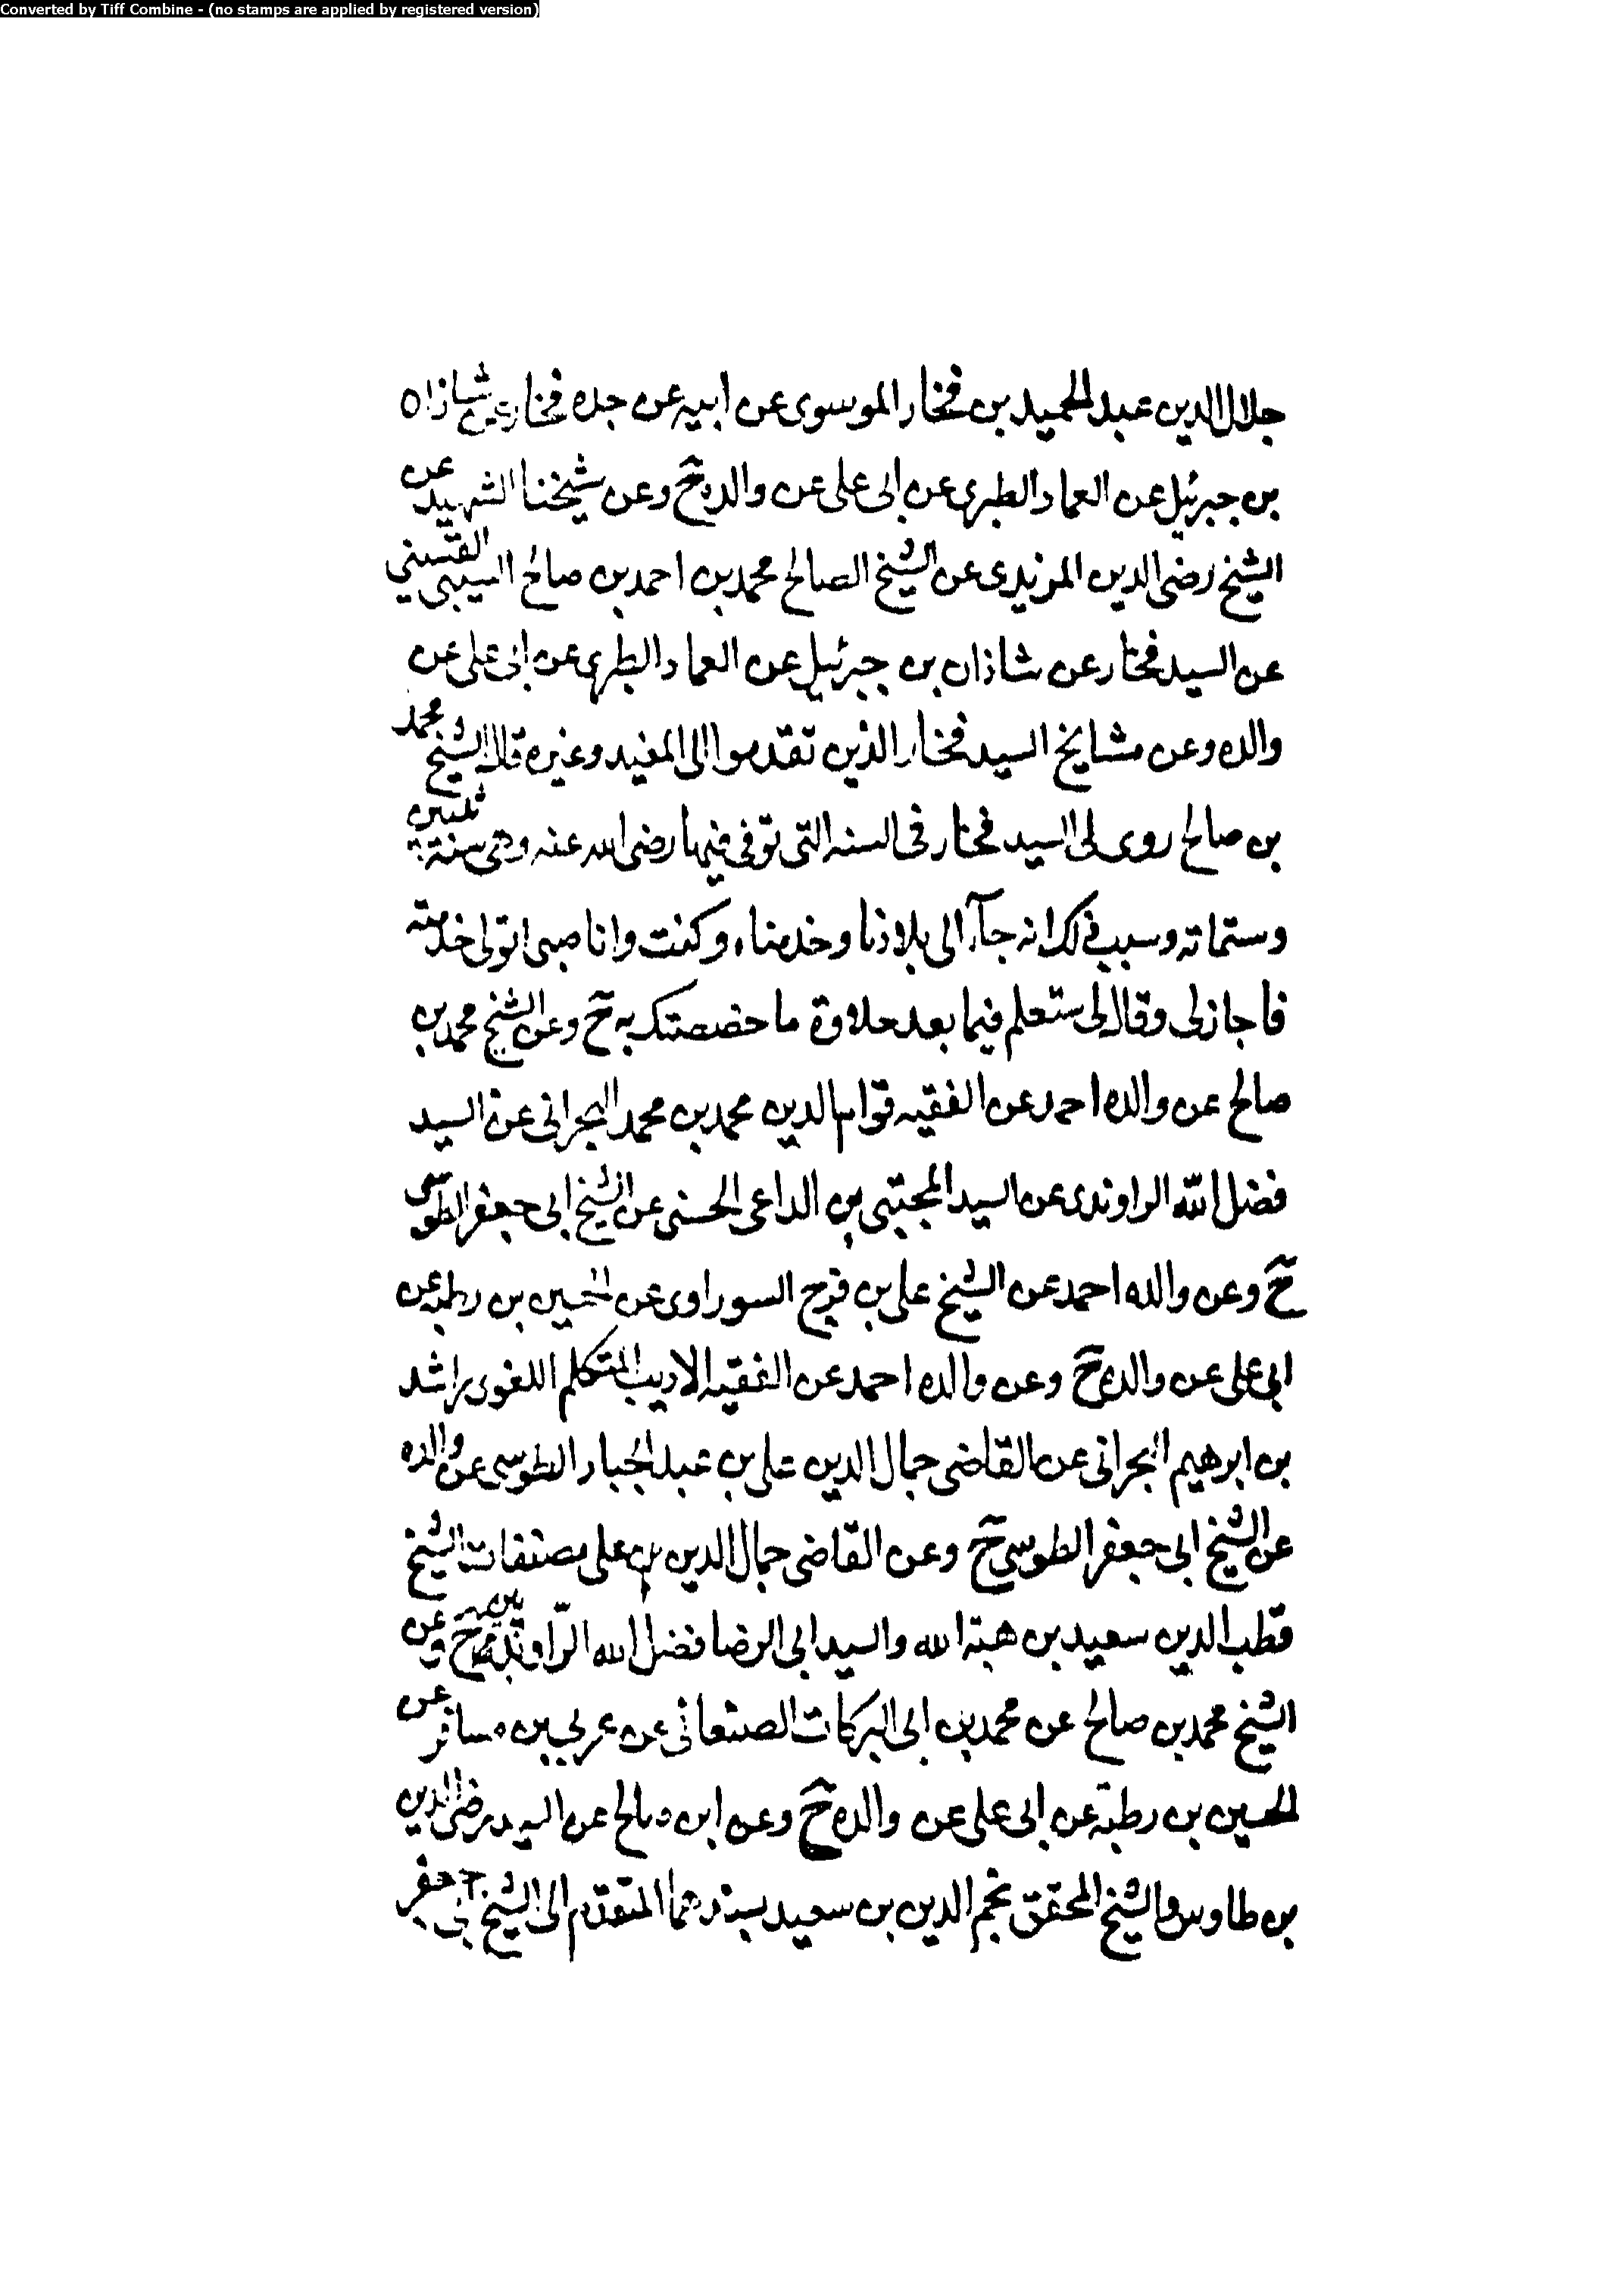 Converted by Tiff Combine - (no stamps are applied by registered version)
جلال الدين عبد الحميد بن فخار الموسوى عن ابيه عن جده فخار عن شاذان
بن جبرئيل عن العماد الطبرى عن ابى على عن والده ح وعن شيخنا الشهيد عن
الشيخ رضى الدين المزيدى عن الشيخ الصالح محمد بن احمد بن صالح السيبى القسينى
عن السيد فخار عن شاذان بن جبرئيل عن العماد الطبرى عن ابى على عن
والده وعن مشايخ السيد فخار الذين تقدموا الى المفيد وغيره قال الشيخ محمد
بن صالح روى لى السيد فخار فى السنه التى توفى فيها رضى الله عنه وهى سنة ثلثين
وستمائه وسبب ذلك انه جآء الى بلادنا وخدمناه وكنت وانا صبى اتولى خدمته
فاجازلى وقال لى ستعلم فيما بعد حلاوة ما خصصتك به ح وعن الشيخ محمد بن
صالح عن والده احمد عن الفقيه قوام الدين محمد بن محمد البحرانى عن السيد
فضل الله الراوندى عن السيد المجتبى بن الداعى الحسنى عن الشيخ ابى جعفر الطوسى
ح وعن والده احمد عن الشيخ على بن فرج السوراوى عن الحسين بن رطبه عن
ابى على عن والده ح وعن والده احمد عن الفقيه الاديب المتكلم اللغوى راشد
بن ابرهيم البحرانى عن القاضى جمال الدين على بن عبد الجبار الطوسى عن والده
عن الشيخ ابى جعفر الطوسى ح وعن القاضى جمال الدين على مصنفات الشيخ
قطب الدين سعيد بن هبة الله والسيد ابى الرضا فضل الله الراونديين ح وعن
الشيخ محمد بن صالح عن محمد بن ابى البركات الصنعانى عن عربى بن مسافر عن
الحسين بن رطبة عن ابى على عن والده ح وعن ابن صالح عن السيد رضى الدين
بن طاوس والشيخ المحقق نجم الدين بن سعيد بسندهما المتقدم الى الشيخ ابى جعفر